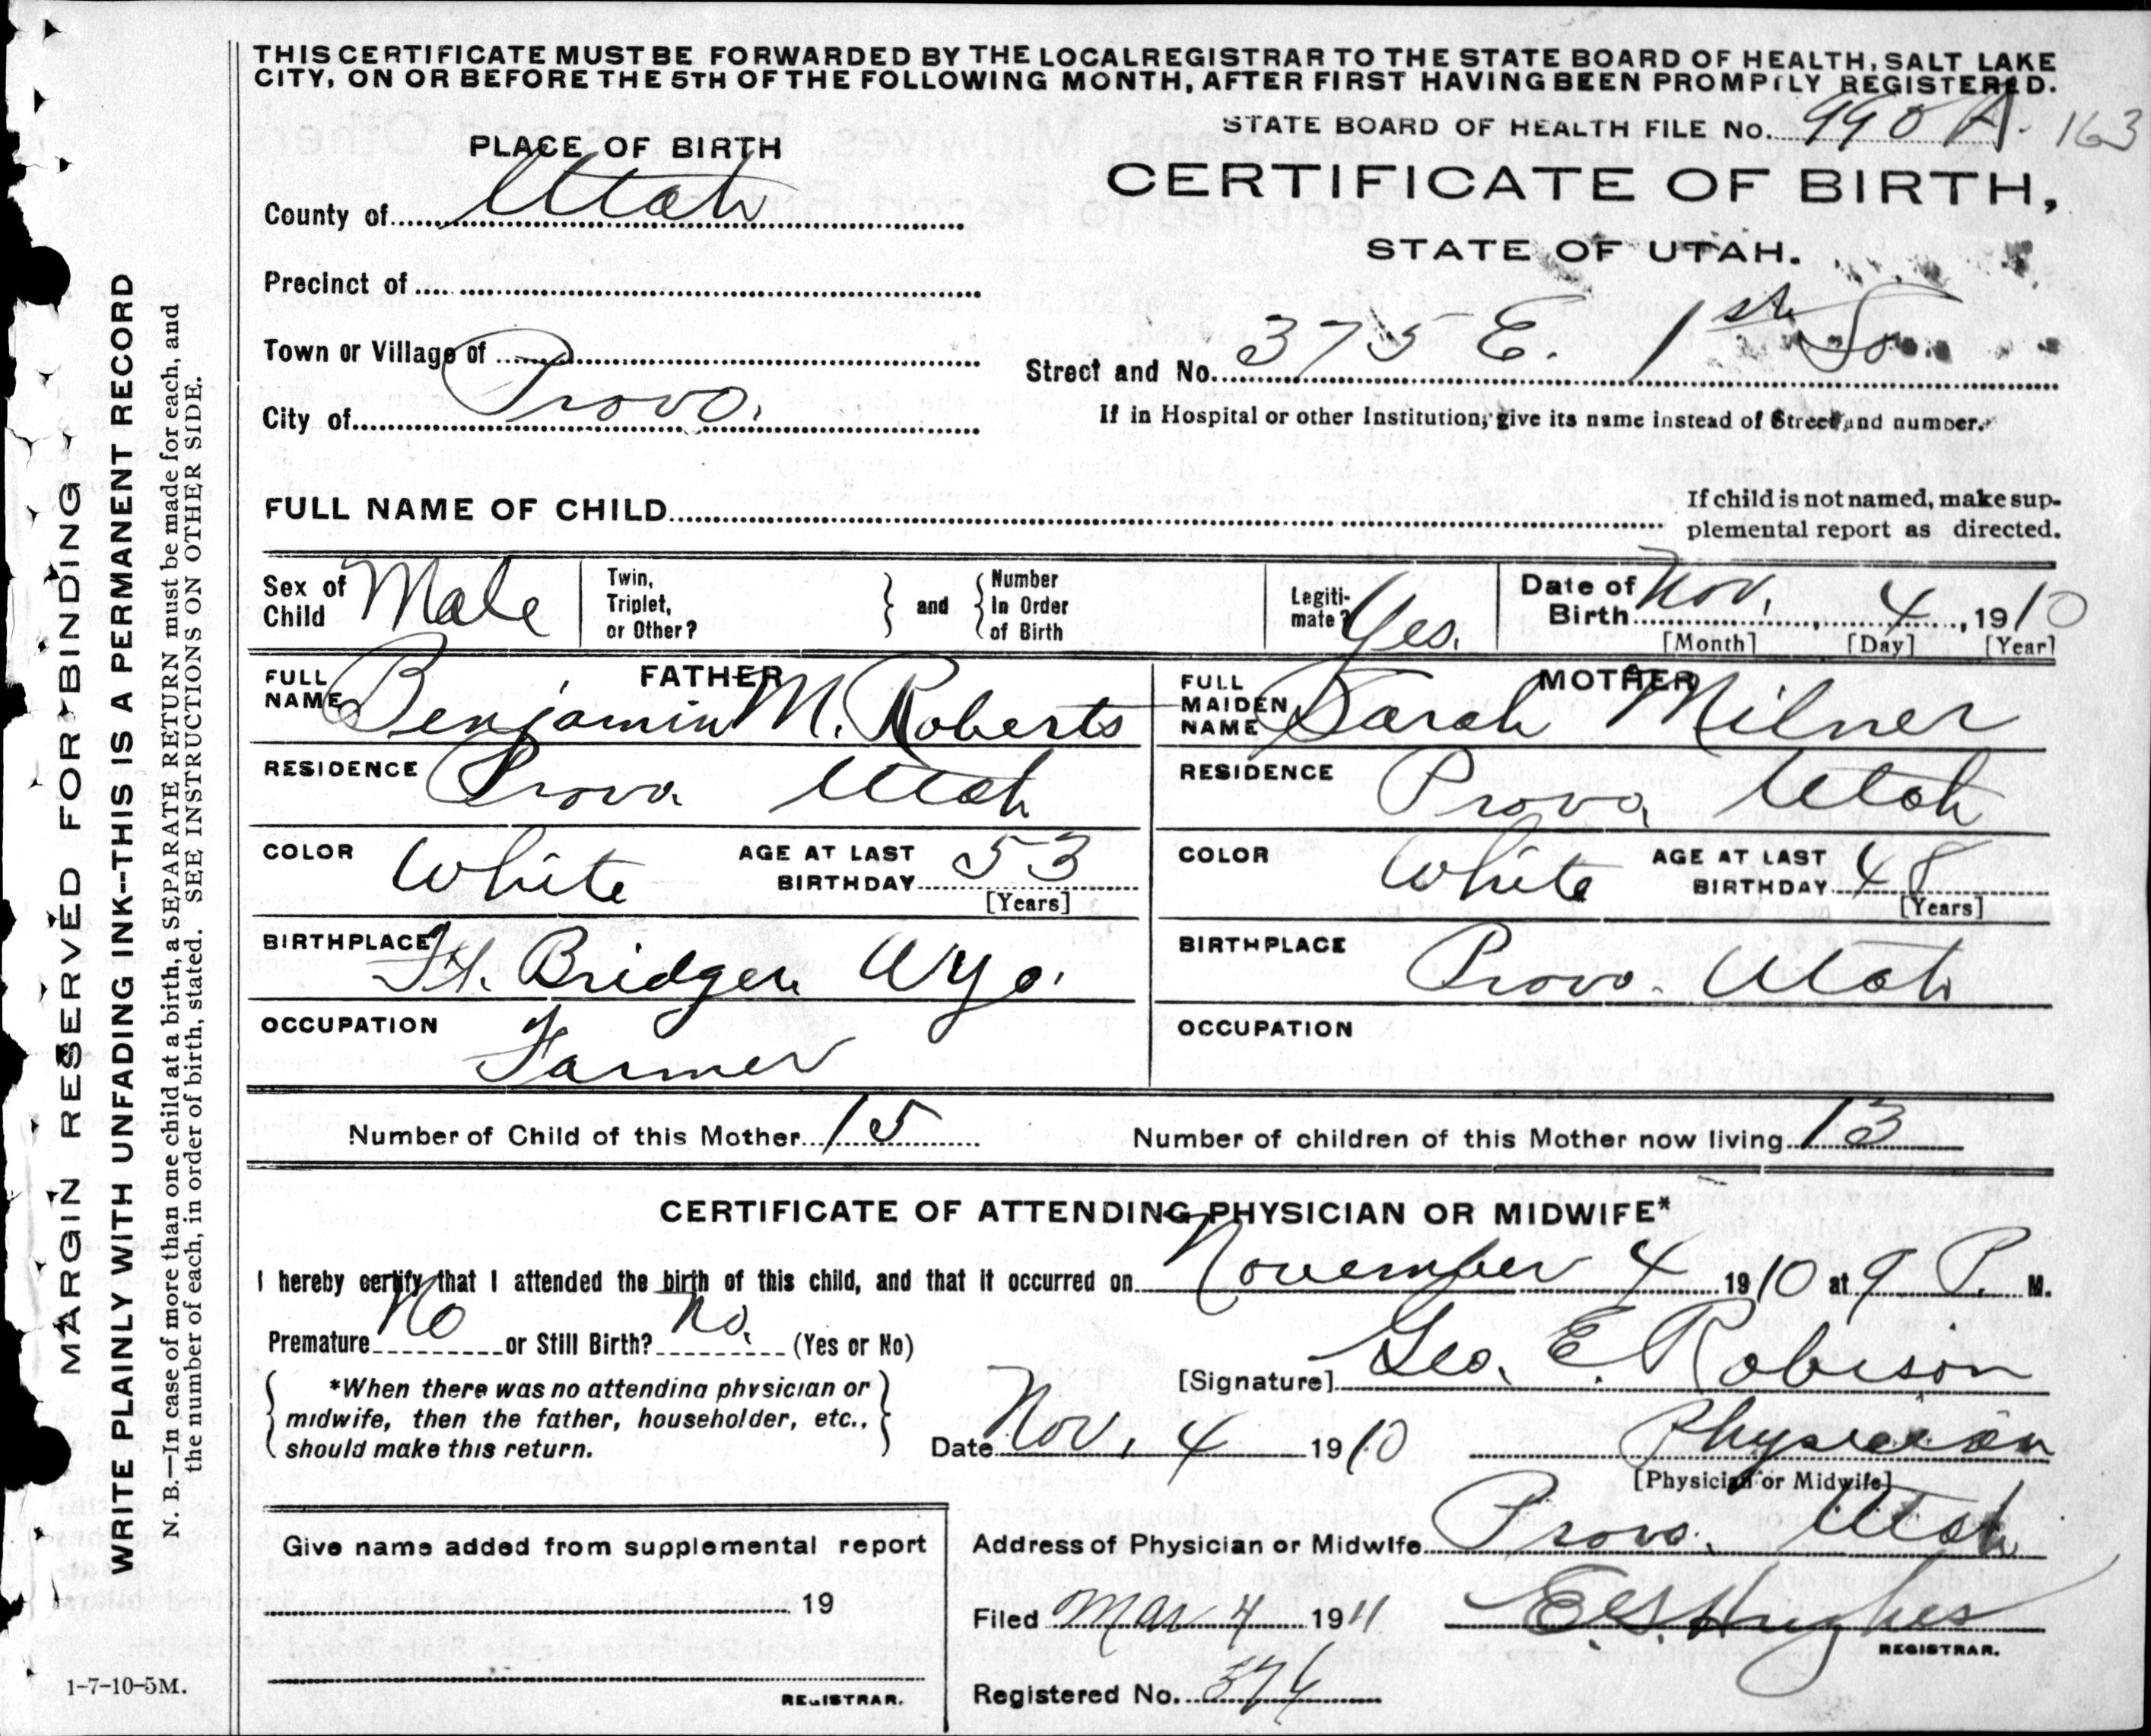 THIS CERTIFICATE MUST BE FORWARDED BY THE LOCAL REGISTRAR TO THE STATE BOARD OF HEALTH, SALT LAKE
CITY, ON OR BEFORE THE 5TH OF THE FOLLOWING MONTH, AFTER FIRST HAVING BEEN PROMPTLY REGISTERED.
STATE BOARD OF HEALTH FILE No. 990 A. 163
CERTIFICATE OF BIRTH,
STATE OF UTAH.
PLACE OF BIRTH
County of Utah
Precinct of
Town or Village of
City of Provo.
Street and No. 375 E. 1st So
If in Hospital or other Institution, give its name instead of Street and number.
FULL NAME OF CHILD
If child is not named, make sup-
plemental report as directed.
Sex of Child Male
Twin, Triplet, or Other?
and
Number In Order of Birth
Legiti-mate? Yes.
Date of Birth Nov. 4, 1910
[Month] [Day] [Year]
FATHER
FULL NAME Benjamin M. Roberts
RESIDENCE Provo Utah
COLOR White AGE AT LAST BIRTHDAY 53
[Years]
BIRTHPLACE Ft. Bridger Wyo.
OCCUPATION Farmer
MOTHER
FULL MAIDEN NAME Sarah Milner
RESIDENCE Provo, Utah
COLOR White AGE AT LAST BIRTHDAY 48
[Years]
BIRTHPLACE Provo. Utah
OCCUPATION
Number of Child of this Mother 15
Number of children of this Mother now living 13
CERTIFICATE OF ATTENDING PHYSICIAN OR MIDWIFE*
I hereby certify that I attended the birth of this child, and that it occurred on November 4 1910 at 9 P. M.
Premature No or Still Birth? No. (Yes or No)
*When there was no attending physician or
midwife, then the father, householder, etc.,
should make this return.
[Signature] Geo. E. Robison
Date Nov. 4 1910 Physician
[Physician or Midwife]
Address of Physician or Midwife Provo. Utah
Give name added from supplemental report
19
REGISTRAR.
Filed Mar 4 1911 E.S. Hughes
REGISTRAR.
Registered No. 374
MARGIN RESERVED FOR BINDING
WRITE PLAINLY WITH UNFADING INK--THIS IS A PERMANENT RECORD
N. B.—In case of more than one child at a birth, a SEPARATE RETURN must be made for each, and
the number of each, in order of birth, stated. SEE INSTRUCTIONS ON OTHER SIDE.
1-7-10-5M.